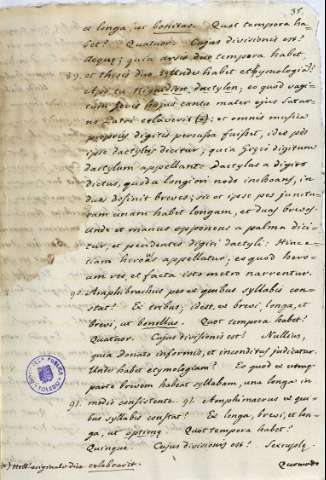 35.
et longa, ut bonitas. Quot tempora ha-
bet? Quatuor. Cujus divisionis est?
Aequę; quia arsis duo tempora habet
89. et thesis duo. Unde habet ethymologia?
dactylon, eo quod vagi-
tum Jovis hujus cantu mater ejus Satur-
no Patri celaverit (a); et omnis musica
propriis digitis percussa fuisset, idcirco pes
ipse dactylus dicetur; quia Greci digitum
dactylum appellant. Dactylus a digito
dictus, quod a longiori nodo inchoans, in
duos desinit breves; sic et ipse pes junctu-
ram unam habet longam, et duas breves.
Unde et manus opponens a palma dici-
tur, et pendentes digiti dactyli. Hinc e-
tiam herous appellatur, eo quod hero-
um res et facta isto metro narrentur.
90. Amphibrachus pes et quibus syllabis con-
stat? Ex tribus; idest, ex brevi, longa, et
brevi, ut Quot tempora habet?
Quatuor. Cujus divisionis est? Nullius,
quia donato informis, et inconditus judicatur.
Unde habet etymologiam? Eo quod ex utraq.
parte brevem habeat syllabam, una longa in
91. medio consistente. 91. Amphimacrus ex qui-
bus syllabis constat? Ex longa, brevi, et lon-
ga, ut Quot tempora habet?
Quinque. Cujus divisionis est?
(a) originali dice celabravit.
Quomodo